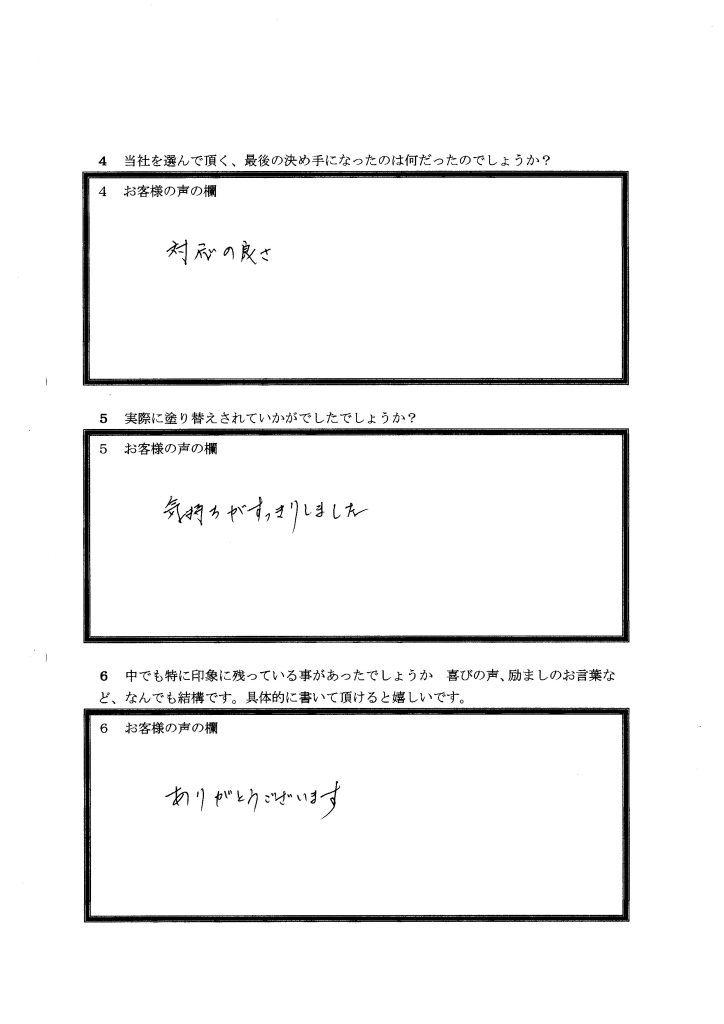 4 当社を選んで頂く、最後の決め手になったのは何だったのでしょうか？
4 お客様の声の欄
対応の良さ
5 実際に塗り替えされていかがでしたでしょうか？
5 お客様の声の欄
気持ちがすっきりしました
6 中でも特に印象に残っている事があったでしょうか 喜びの声、励ましのお言葉な
ど、なんでも結構です。具体的に書いて頂けると嬉しいです。
6 お客様の声の欄
ありがとうございます